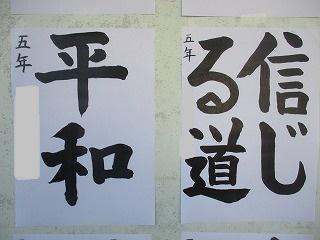 信じ
る道
五年
平和
五年